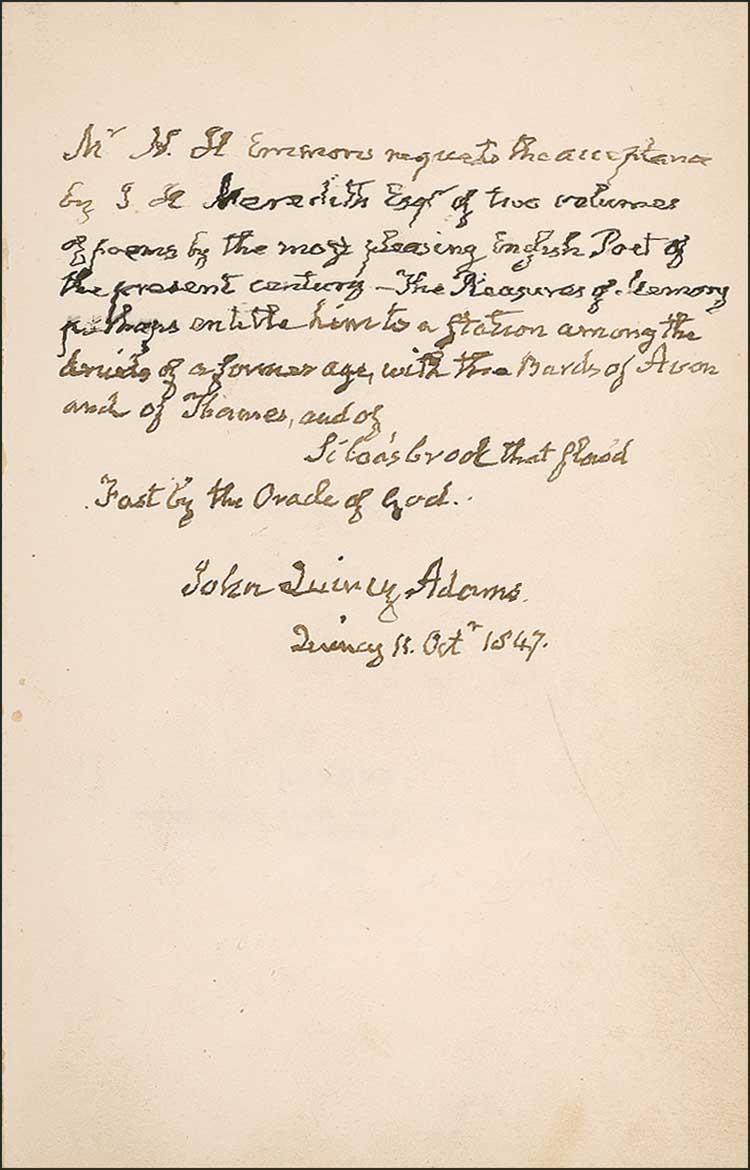 Mr H. H Emmons requests the acceptance
by J H Meredith Esqr of two volumes
of poems by the most pleasing English Poet of
the present century — The Pleasures of Memory
perhaps entitle him to a station among the
of a former age, with the Bards of Avon
and of Thames, and of
Siloa's brook that flow'd
Fast by the Oracle of God.
John Quincy Adams.
Quincy 11. Octr 1847.